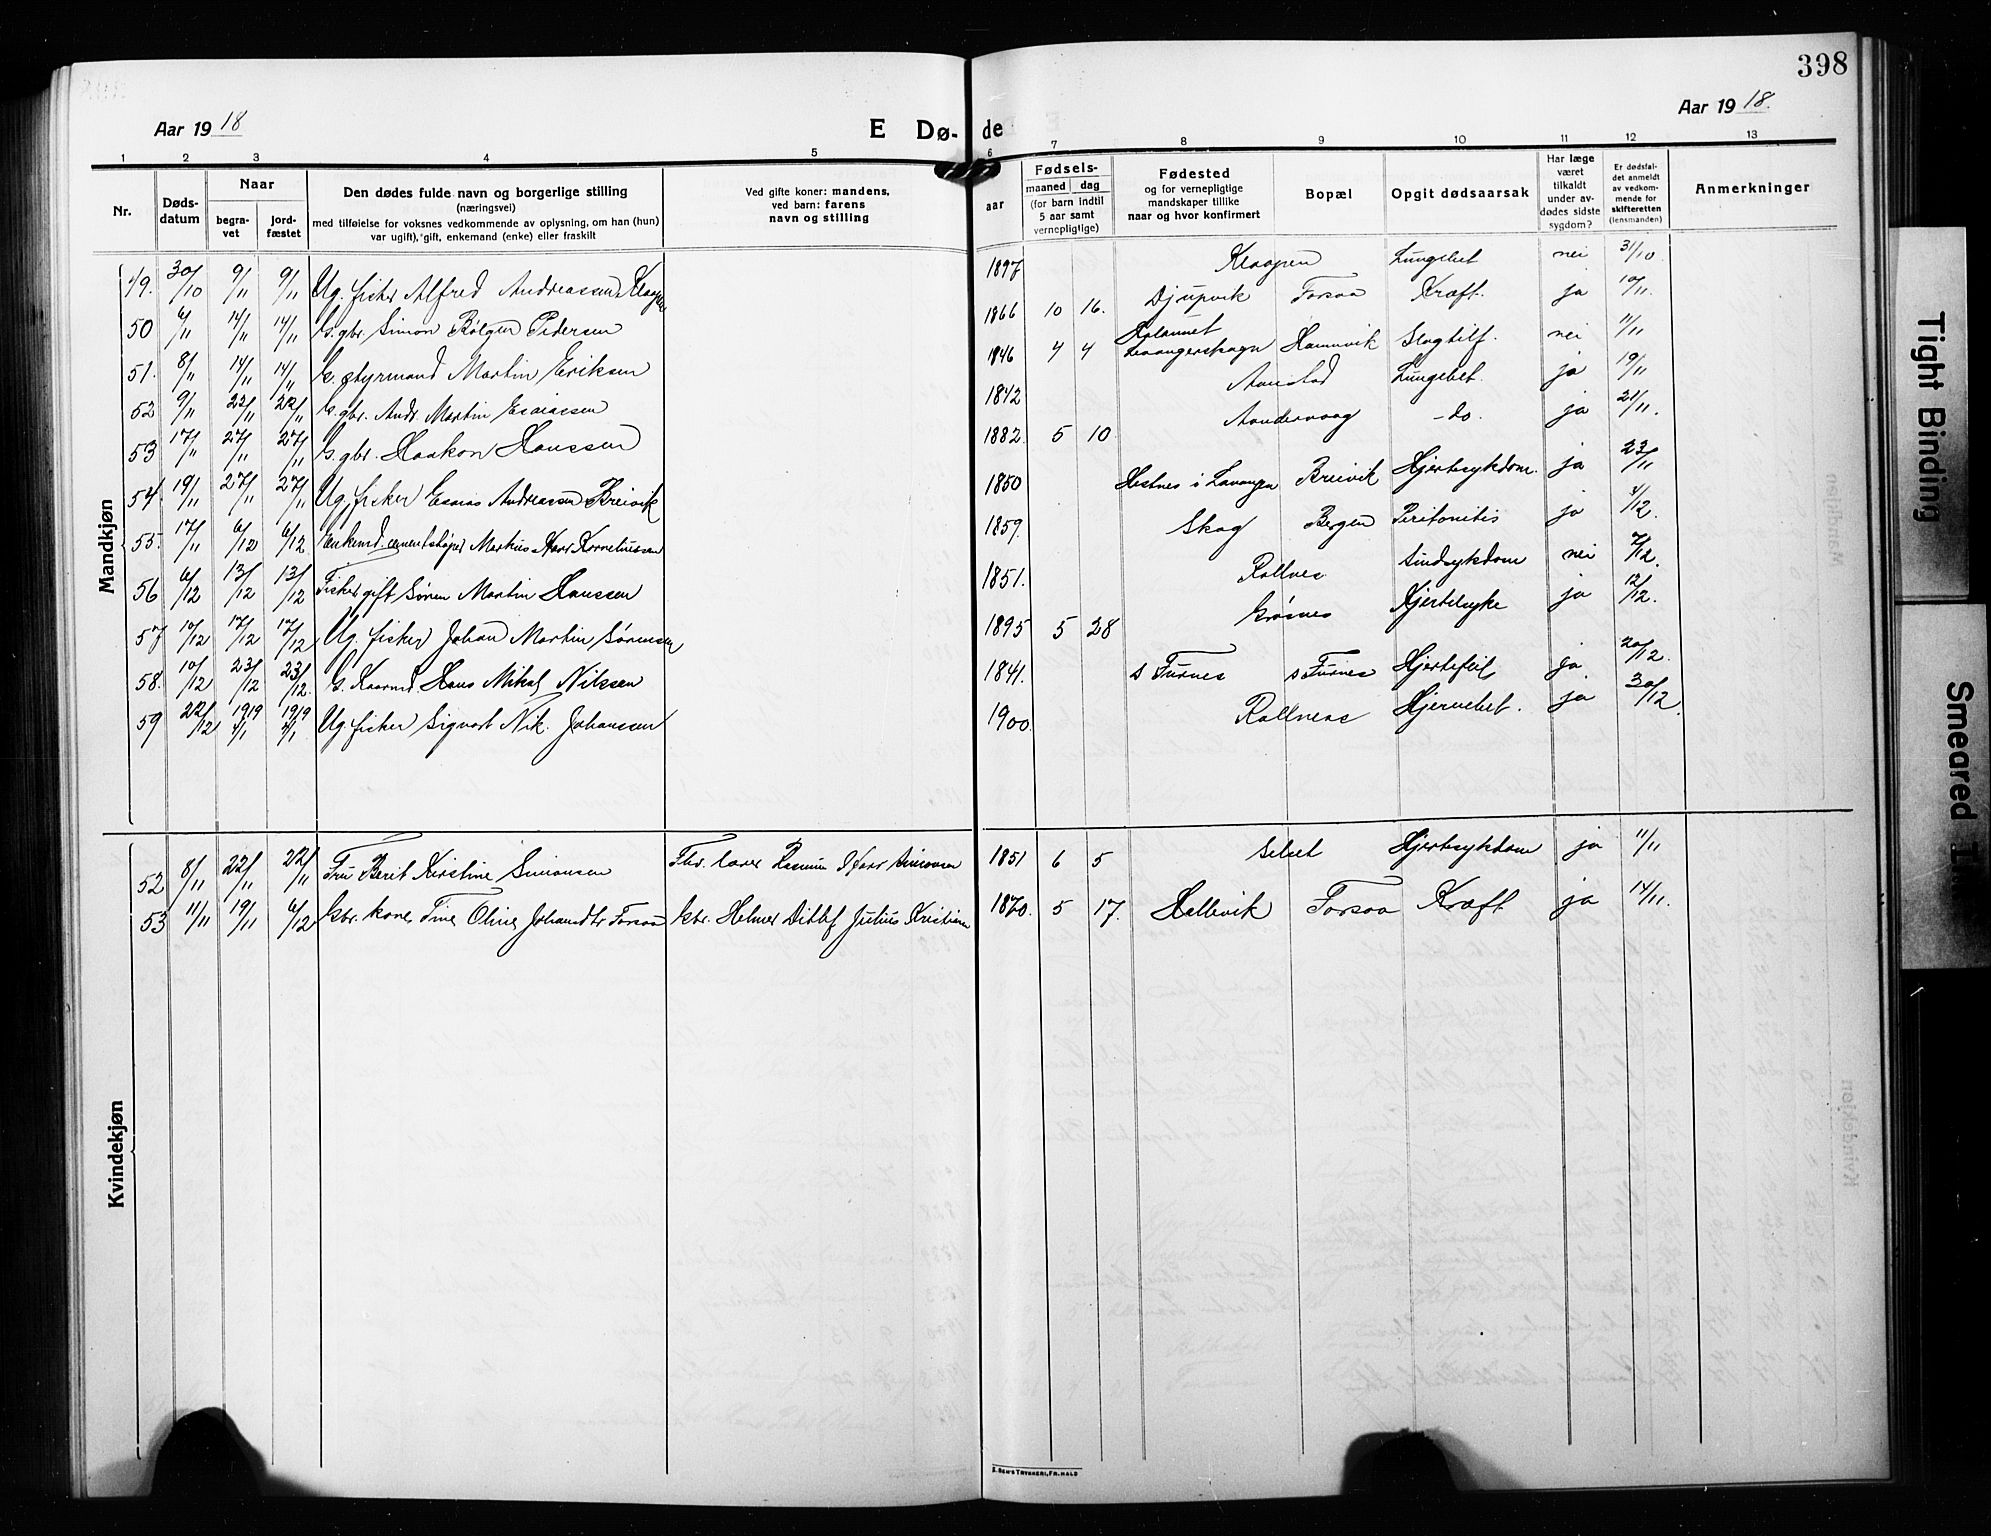 398
Aar 19 18
E Dø- de
Aar 19 18.
1 2 3 4 5 6 7 8 9 10 11 12 13
Nr.
Døds-
datum
Naar
begra-
vet
jord-
fæstet
Den dødes fulde navn og borgerlige stilling
(næringsvei)
med tilføielse for voksnes vedkommende av oplysning, om han (hun)
var ugift, gift, enkemand (enke) eller fraskilt
Ved gifte koner: mandens,
ved barn: farens
navn og stilling
Fødsels-
aar
maaned dag
(for barn indtil
5 aar samt
vernepligtige)
Fødested
og for vernepligtige
mandskaper tillike
naar og hvor konfirmert
Bopæl
Opgit dødsaarsak
Har læge
været
tilkaldt
under av-
dødes sidste
sygdom?
Er dødsfal-
det anmeldt
av vedkom-
mende for
skifteretten
(lensmanden)
Anmerkninger
Mandkjøn
49. 30/10 9/11 9/11 Ug. fisker Alfred Andreassen Klaapen 1897 Klaapen Lungebet nei 31/10
50 6/11 14/11 14/11 G. gbr. Simon Bølgen Pedersen 1866 10 16. Djupvik Forsaa Kræft. ja 10/11.
51. 8/11 14/11 14/11 G. styrmand Martin Eriksen 1846 4 4 Hamnvik Slagtilf. nei 11/11
52 9/11 22/11 22/11 G. gbr. Andr. Martin Esaiassen 1842 Aanstad Lungebet. ja 19/11
53 17/11 27/11 27/11 G. gbr. Haakon Hanssen 1882. 5 10 Aandervaag -do. ja 21/11.
54. 19/11 27/11 27/11 Ug. fisker Esaias Andreassen Breivik 1850 Hestnes i Lavangen Breivik Hjertesykdom. ja 23/11
55. 17/11 6/12 6/12 Enkemd. cementstøper Markus Korneliussen 1859. Skog Bergen Peritonitis ja 4/12.
56 6/12 13/12 13/12 Fisker gift Søren Martin Hanssen 1851. Rollnes Sindsykdom nei 7/12.
57 10/12 17/12 17/12 Ug. fisker Johan Martin Sørensen 1895 5 28 Grøsnes Hjertelyke ja 12/12.
58. 10/12 23/12 23/12. G. Kaarmd. Hans Mikal Nilssen 1841. s Furnes s Furnes Hjertefeil ja 20/12.
59 22/12 1919 4/1 1919 4/1 Ug. fisker Sigvart Nik. Johanssen 1900. Rollnes Hjernebet. ja 30/12.
Kvindekjøn
52 8/11 22/11 22/11 Fru Berit Kirstine Simonsen Fhv. lærer Rasmus Simonsen 1851 6 5 Selset Hjertesykdom ja 11/11
53 11/11 19/11 6/12 Gbr. kone Tine Oline Johansdtr Forsaa Gbr. Helmer Ditlef Julius Kristians 1870. 5 17. Hallevik Forsaa Kræft ja 14/11.
Tight Binding
Smeared